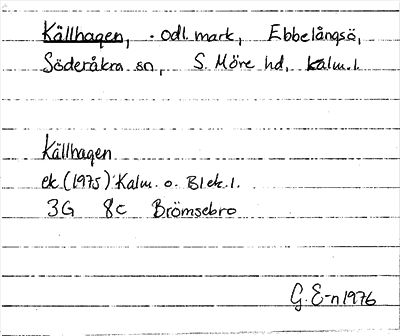 Källhagen, . odl. mark, Ebbelångsö,
Söderåkra sn, S. Möre hd, Kalm. l.
Källhagen
ek (1975) Kalm. o. Blek. l.
3G 8c Brömsebro
G. E-n 1976